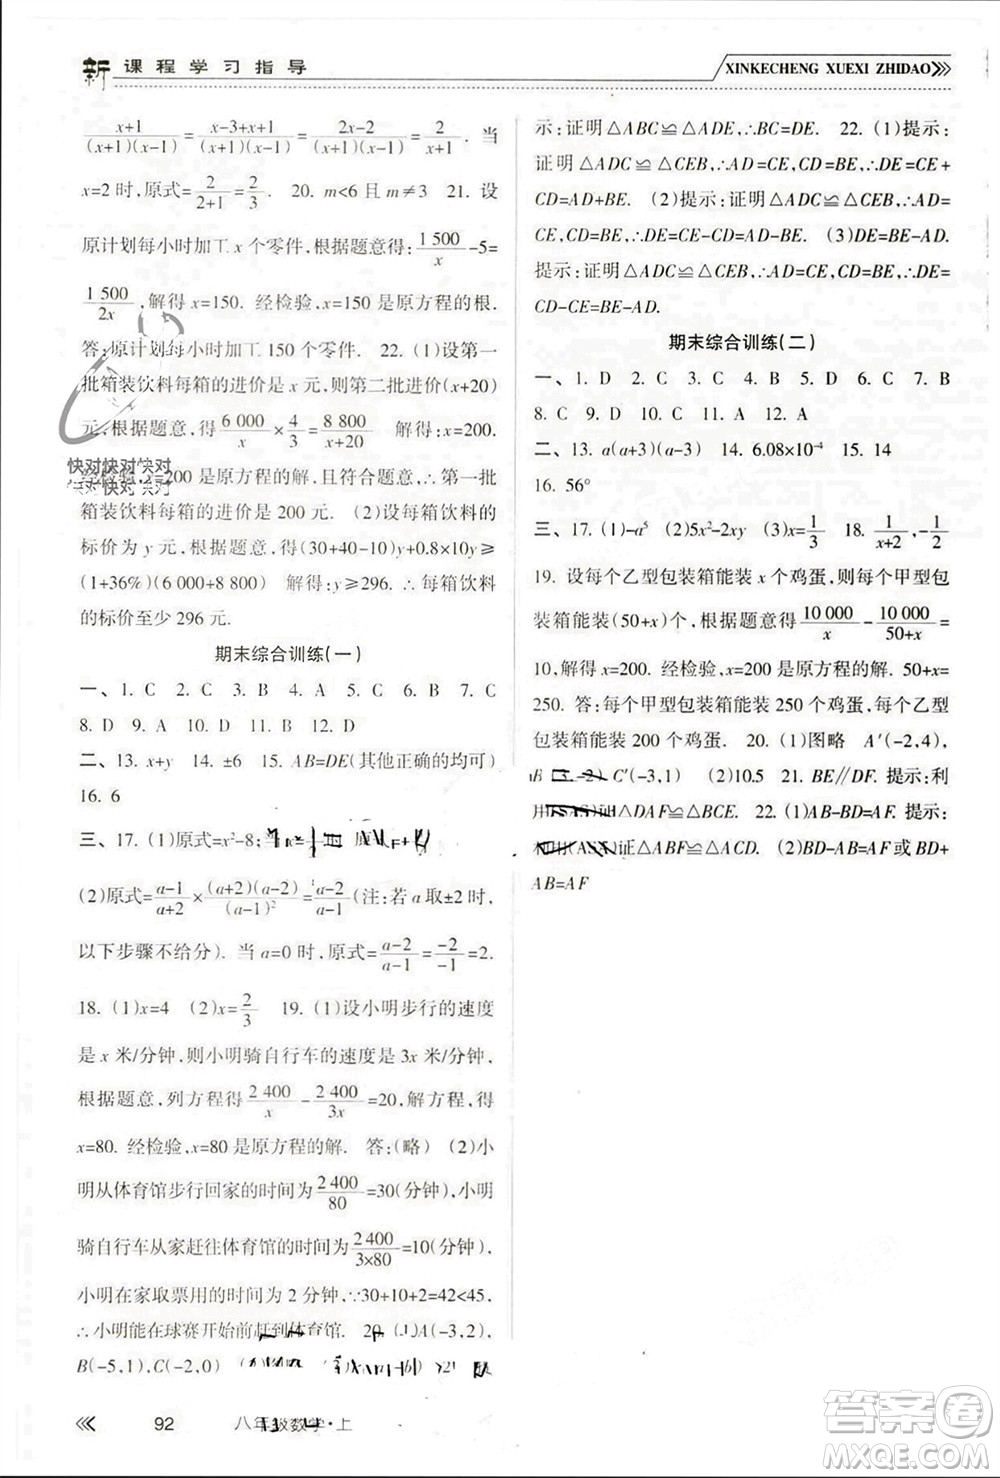 新课程学习指导
XINKECHENG XUEXI ZHIDAO
(x+1)/((x+1)(x-1))=(x-3+x+1)/((x+1)(x-1))=(2x-2)/((x+1)(x-1))=2/(x+1). 当
x=2时,原式=2/(2+1)=2/3. 20. m<6且m≠3 21. 设
原计划每小时加工x个零件,根据题意得:1 500/x-5=
1 500/2x,解得x=150. 经检验,x=150是原方程的根.
答:原计划每小时加工150个零件. 22. (1)设第一
批箱装饮料每箱的进价是x元,则第二批进价是(x+20)
元,根据题意,得6 000/x×4/3=8 800/(x+20) 解得:x=200,
经检验,x=200是原方程的解,且符合题意,∴第一批
箱装饮料每箱的进价是200元. (2)设每箱饮料的
标价为y元,根据题意,得(30+40-10)y+0.8×10y≥
(1+36%)(6 000+8 800) 解得:y≥296. ∴每箱饮料
的标价至少296元.
期末综合训练(一)
一、1. C 2. C 3. B 4. A 5. C 6. B 7. C
8. D 9. A 10. D 11. B 12. D
二、13. x+y 14. ±6 15. AB=DE(其他正确的均可)
16. 6
三、17. (1)原式=x²-8;当
(2)原式=(a-1)/(a+2)×((a+2)(a-2))/(a-1)²=(a-2)/(a-1)(注:若a取±2时,
以下步骤不给分). 当a=0时,原式=(a-2)/(a-1)=-2/-1=2.
18. (1)x=4 (2)x=2/3 19. (1)设小明步行的速度
是x米/分钟,则小明骑自行车的速度是3x米/分钟,
根据题意,列方程得2 400/x-2 400/3x=20,解得
x=80. 经检验,x=80是原方程的解. 答:(略) (2)小
明从体育馆步行回家的时间为2 400/80=30(分钟),小明
骑自行车从家赶往体育馆的时间为2 400/(3×80)=10(分钟),
小明在家取票用的时间为2分钟,∵30+10+2=42<45,
∴小明能在球赛开始前赶到体育馆. 20. (1)A(-3,2)
B(-5,1),C(-2,0)
示:证明△ABC≌△ADE,∴BC=DE. 22. (1)提示:
证明△ADC≌△CEB,∴AD=CE,CD=BE,∴DE=CE+
CD=AD+BE. (2)提示:证明△ADC≌△CEB,∴AD=
CE,CD=BE,∴DE=CE-CD=AD-BE. (3)DE=BE-AD.
提示:证明△ADC≌△CEB,∴AD=CE,CD=BE,∴DE=
CD-CE=BE-AD.
期末综合训练(二)
一、1. D 2. C 3. D 4. B 5. A 6. C 7. B
8. C 9. D 10. C 11. A 12. A
二、13. a(a+3)(a-3) 14. 6.08×10⁻⁴ 15. 14
16. 56°
三、17. (1)-a⁵ (2)5x²-2xy (3)x=1/3 18. 1/(x+2),-1/2
19. 设每个乙型包装箱能装x个鸡蛋,则每个甲型包
装箱能装(50+x)个,根据题意得:10 000/x-10 000/(50+x)=
10,解得x=200. 经检验,x=200是原方程的解. 50+x=
250. 答:每个甲型包装箱能装250个鸡蛋,每个乙型
包装箱能装200个鸡蛋. 20. (1)图略 A′(-2,4),
C′(-3,1) (2)10.5 21. BE∥DF. 提示:利
用 证△DAF≌△BCE. 22. (1)AB-BD=AF. 提示:
证△ABF≌△ACD. (2)BD-AB=AF或BD+
AB=AF
快对快对快对
快对快对快对
92 八年级数学·上
答案圈
MXQE.COM